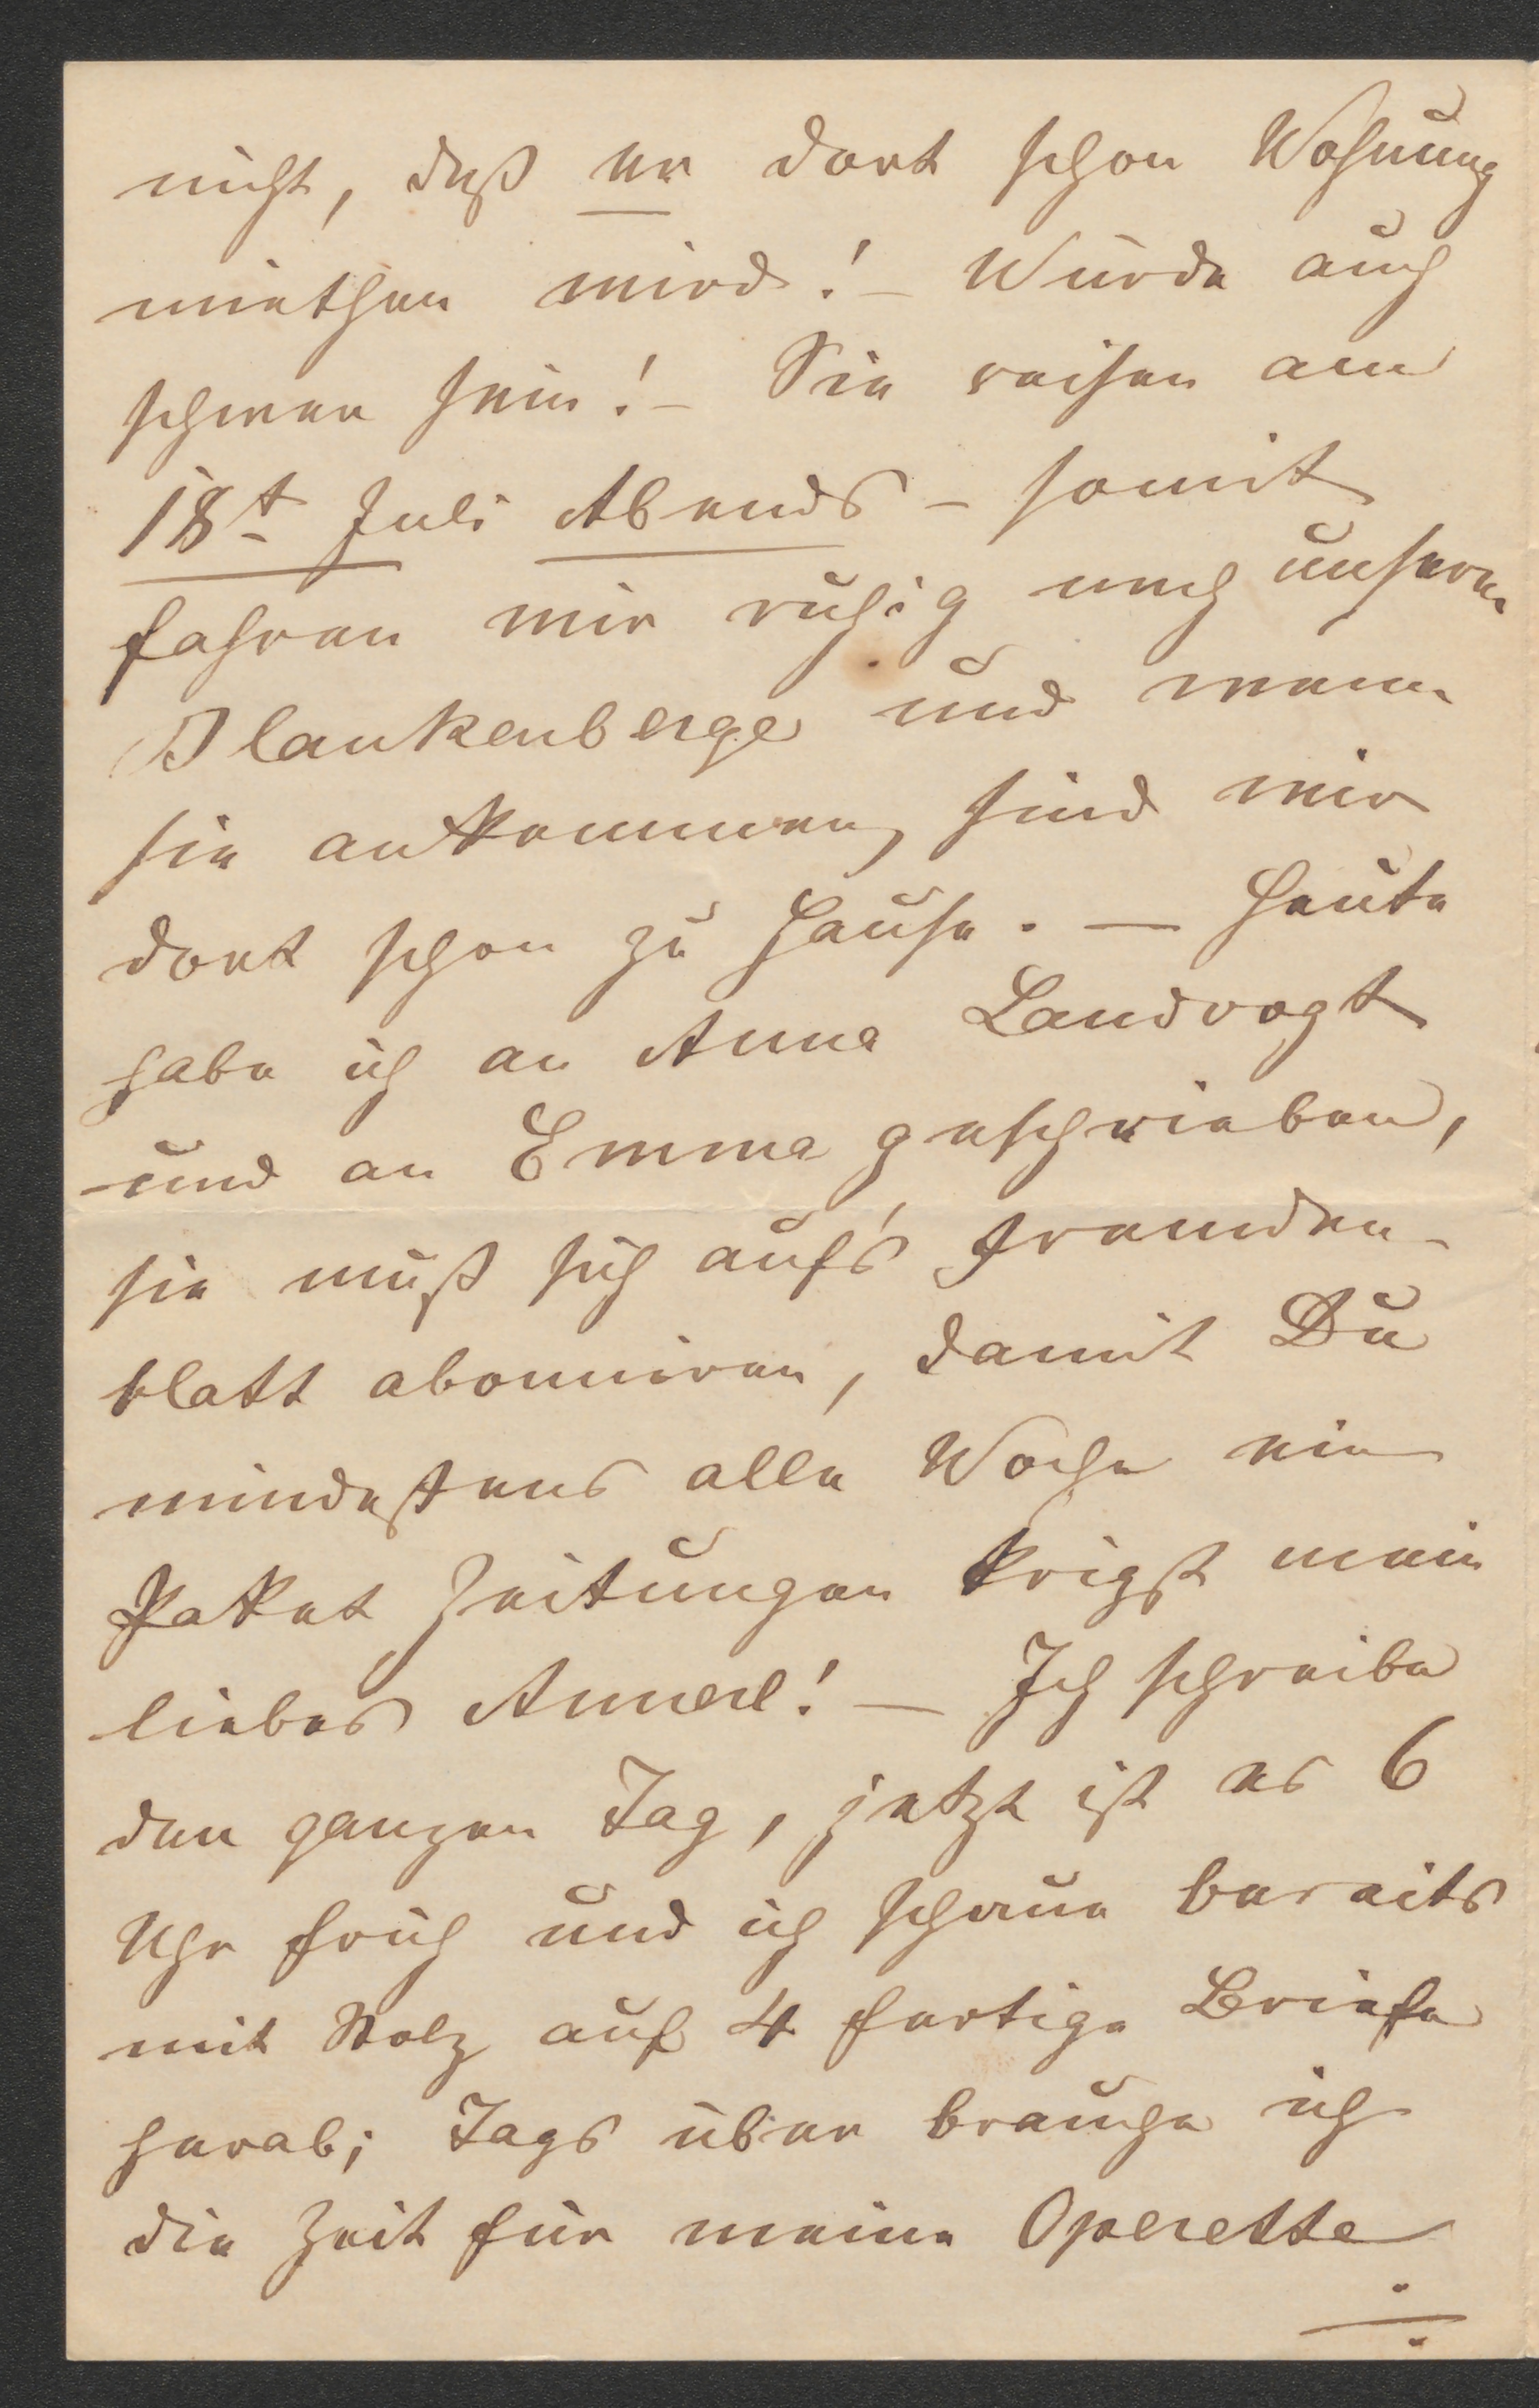 nicht, daß er dort schon Wohnung
miethen wird! – Würde auch
schwer sein! – Sie reisen am
18t Juli Abends – somit
fahren wir ruhig nach unserm
Blankenberge und wenn
sie ankommen, sind wir
dort schon zu Hause. — Heute
habe ich an Anna Landvogt
und an Emma geschrieben,
sie muß sich auf's Fremden-
blatt abonniren, damit Du
mindestens alle Woche ein
Paket Zeitungen krigst mein
liebes Annerl! — Ich schreibe
den ganzen Tag, jetzt ist es 6
Uhr früh und ich schaue bereits
mit Stolz auf 4 fertige Briefe
herab; Tags über brauche ich
die Zeit für meine Operette
÷